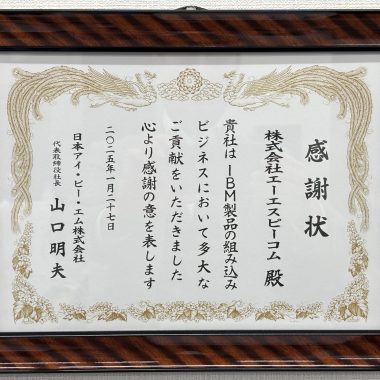 感謝状
株式会社エーエスピーコム 殿
貴社は IBM製品の組み込み
ビジネスにおいて多大な
ご貢献をいただきました
心より感謝の意を表します
二〇二五年一月二十七日
日本アイ・ビー・エム株式会社
代表取締役社長 山口明夫